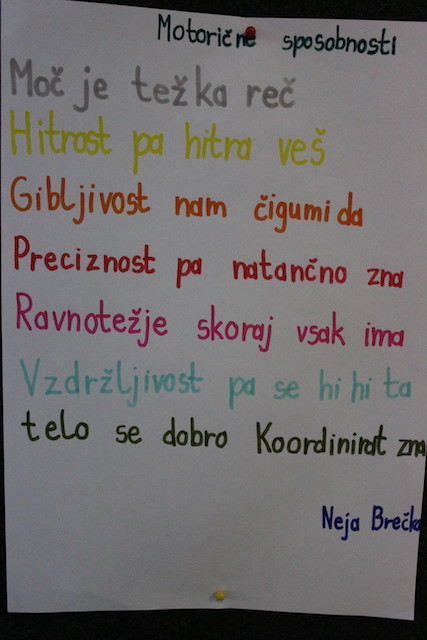 Motorične sposobnosti
Moč je težka reč
Hitrost pa hitra veš
Gibljivost nam čigumi da
Preciznost pa natančno zna
Ravnotežje skoraj vsak ima
Vzdržljivost pa se hi hi ta
telo se dobro Koordinirat zna
Neja Brečko